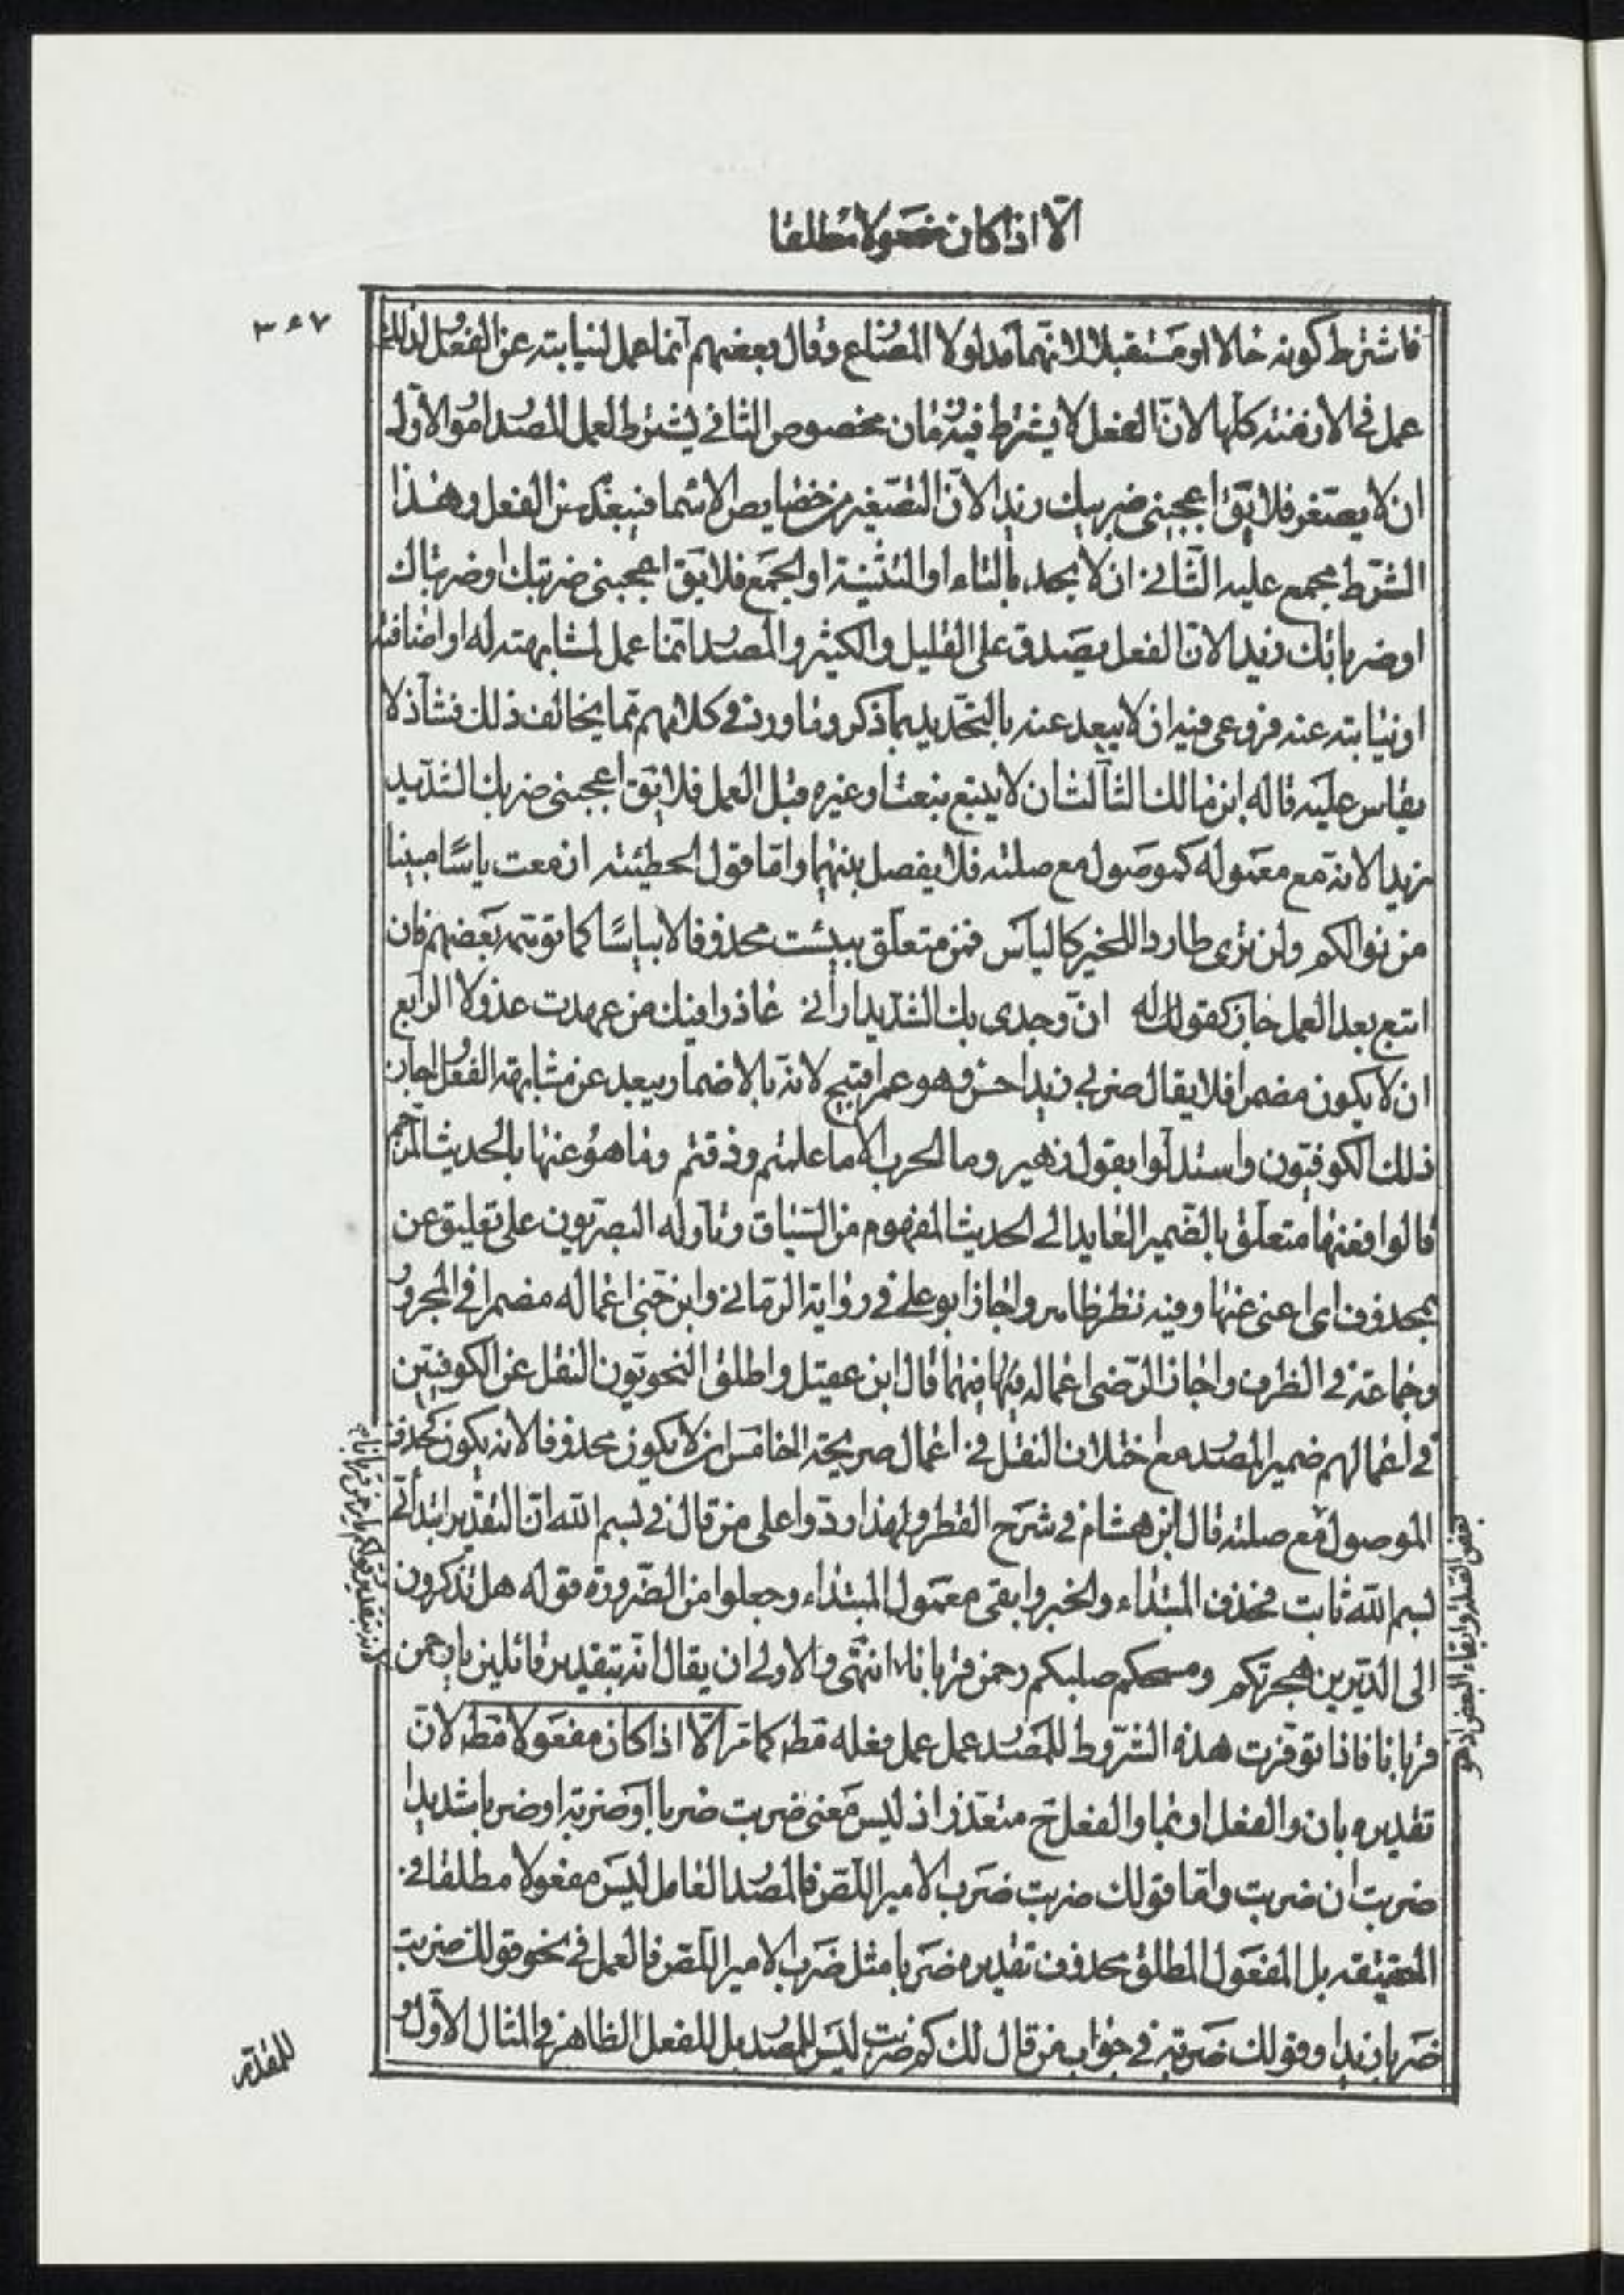 الّا اذا كان مفعولا مطلقا
٣٤٧
فاشترط كونه حالا او مستقبلا لانّهما مدلولا المضارع وقال بعضهم انما عمل لنيابته عن الفعل لذلك
عمل فى الازمنة كلّها لانّ الفعل لا يشترط فيه زمان مخصوص الثانى يشترط لعمل المصدر امور الاوّل
ان لا يصغر فلا يق اعجبنى ضريبك زيدا لانّ التصغير من خصايص الاسماء فيبعّد عن الفعل وهذا
الشرط مجمع عليه الثانى ان لا يحد بالتاء او التثنية او الجمع فلا يق اعجبنى ضربتك او ضربتاك
او ضرباتك زيدا لانّ الفعل يصدق على القليل والكثير والمصدر انّما عمل لمشابهته له او اضافته
او نيابته عنه فروعى فيه ان لا يبعد عنه بالتحديد بما ذكر وما ورد فى كلامهم ممّا يخالف ذلك فشاذ لا
يقاس عليه قاله ابن مالك الثالث ان لا يتبع بنعت او غيره قبل العمل فلا يق اعجبنى ضربك الشديد
زيدا لانّه مع معموله كموصول مع صلته فلا يفصل بينهما وامّا قول الحطيئة ازمعت ياسًا مبينا
من نوالكم ولن ترى طاردا للخير كالياس فمن متعلّق بيئست محذوفا لا بياسًا كما توهّمه بعضهم فان
اتبع بعد العمل جاز كقوله انّ وجدى بك الشديد ارانى عاذرا فيك من عهدت عذولا الرابع
ان لا يكون مضمرا فلا يقال ضربى زيدا حسن وهو عمرا قبيح لانّه بالاضمار يبعد عن مشابهة الفعل واجاز
ذلك الكوفيّون واستدلّوا بقول زهير وما الحرب الّا ما علمتم وذقتم وما هو عنها بالحديث المرجّم
قالوا فعنها متعلّق بالضمير العايد الى الحديث المفهوم من السّياق وتاوّله البصريون على تعليق عن
بمحذوف اى اعنى عنها وفيه نظر ظاهر واجاز ابو على فى رواية الرّمانى وابن جنّى اعماله مضمرا فى المجرور
وجماعة فى الظرف واجاز الرّضى اعماله فيهما قال ابن عقيل واطلق النحويّون النقل عن الكوفيّين
فى اعمالهم ضمير المصدر مع اختلاف النقل فى اعمال صريحه الخامس ان لا يكون محذوفا لانه يكون كحذف
الموصول مع صلته قال ابن هشام فى شرح القطر ولهذا ردّوا على من قال فى بسم الله انّ التقدير ابتدائى
بسم الله ثابت فحذف المبتداء والخبر وابقى معمول المبتداء وجعلوا من الضّرورة قوله هل تذكرون
الى الدّيرين هجرتكم ومسحكم صلبكم رحمن قربانا انتهى والاولى ان يقال انّه بتقدير قائلين يا رحمن
قربانا فاذا توفّرت هذه الشروط للمصدر عمل عمل فعله قط كما مرّ الّا اذا كان مفعولا قط لانّ
تقديره بان والفعل او بما والفعل ح متعذّر اذ ليس معنى ضربت ضربا او ضربة او ضربا شديدا
ضربت ان ضربت وامّا قولك ضربت ضرب الامير اللّص فالمصدر العامل ليس مفعولا مطلقا فى
الحقيقة بل المفعول المطلق محذوف تقديره ضربا مثل ضرب الامير اللّص فالعمل فى نحو قولك ضربت
ضربا زيدا وقولك ضربته فى جواب من قال لك كم ضربت ليس للمصدر بل للفعل الظاهر فى المثال الاوّل و
للمقدّر